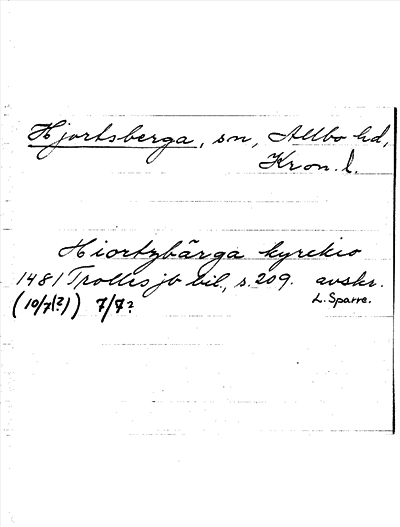 Hjortsberga, sn, Allbo hd,
Kron. l.
Hiortzbärga kyrekio
1481 Trolles jb bil., s. 209. avskr.
(10/7(?)) 7/7? L. Sparre.